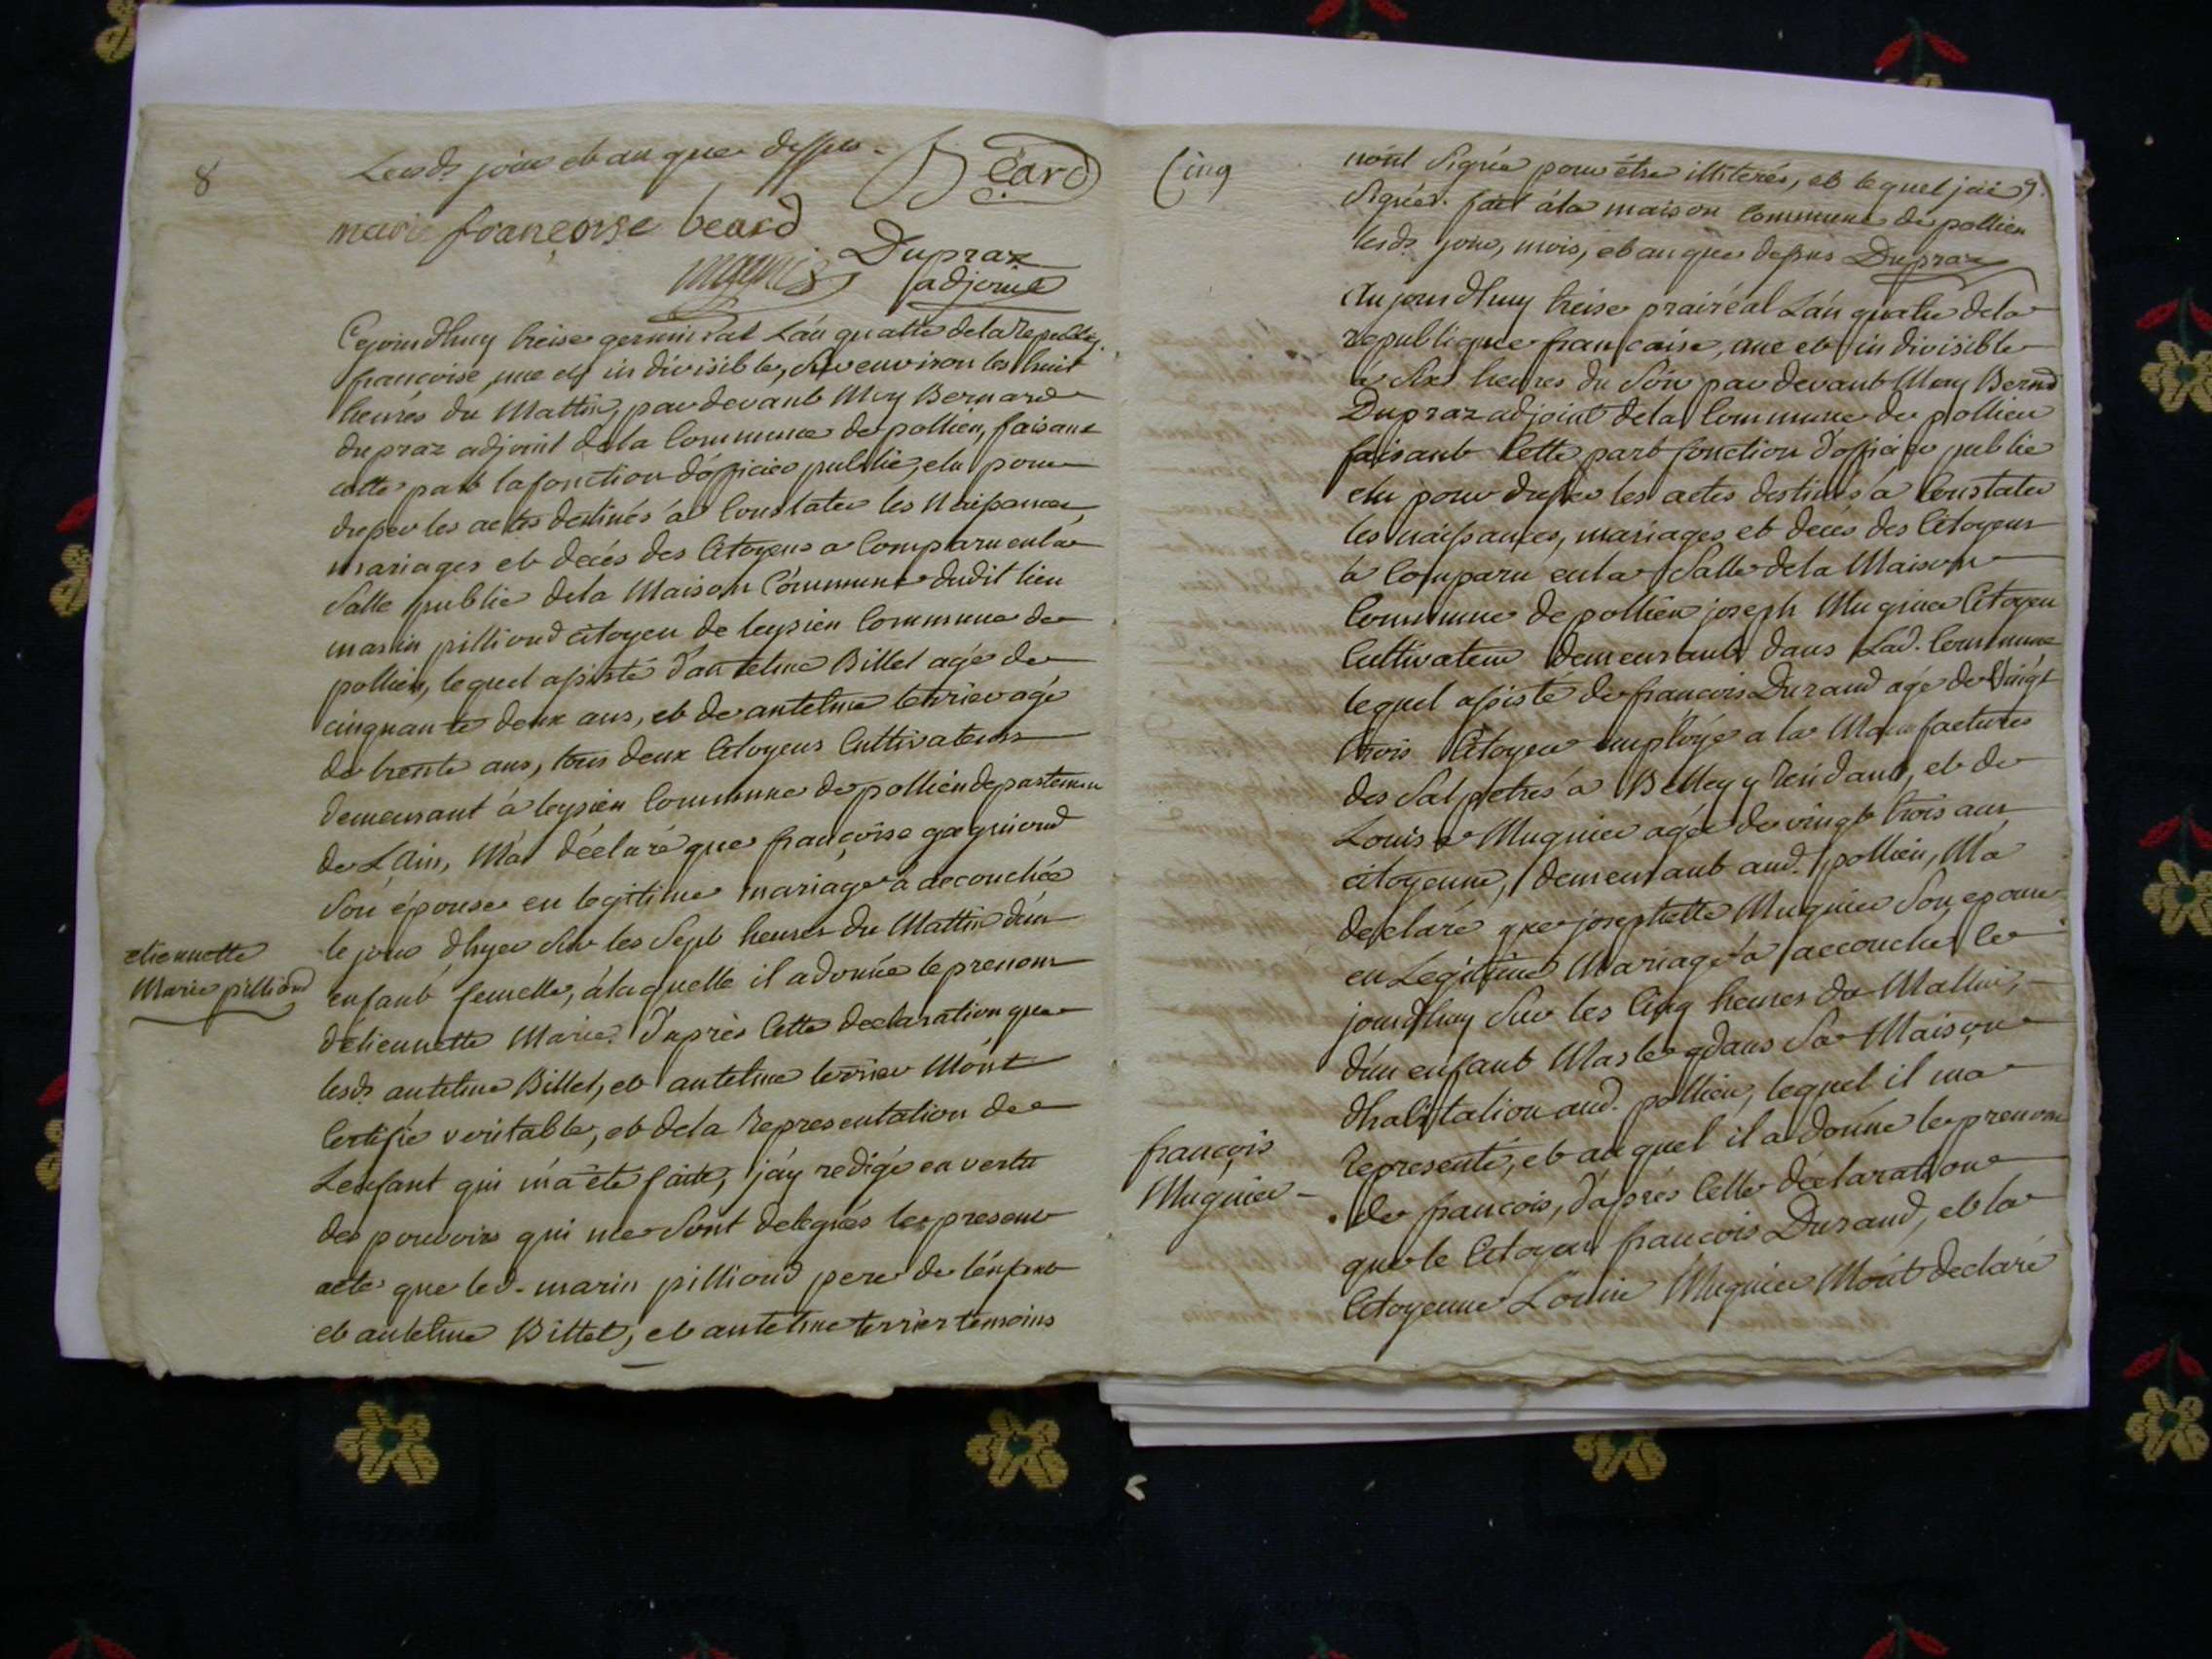 8
Lesds. jour et an que dessus.
Béard
marie françoise beard
Dupraz
adjoint
Cejourdhuy treise germinal L'án quatre de la republiq.
françoise, une et in divisible, Sur environ les huit
heures du Mattin, par devant Moy Bernard
dupraz adjoint de la Commune de pollien, faisant
cette part la fonction d'officier public, elu pour
dresser les actes destinés á Constater les Naissances,
mariages et decés des Citoyens a Comparu en la
Salle public de la Maison Commune dudit lieu
marin pilliond citoyen de leysien Commune de
pollien, lequel assisté d'antelme Billet agé de
cinquante deux ans, et de antelme terrier agé
de trente ans, tous deux Citoyens Cultivateurs
demeurant á leysien Commune de pollien departemen
de L'Ain, M'a déclaré que françoise gagniond
Son épouse en legitime mariage a accouchée
le jour dhyer Sur les Sept heures du Mattin d'un
enfant femelle, á laquelle il a donnée le prenom
d'etiennette Marie. D'aprés Cette declaration que
lesds. antelme Billet, et antelme terrier M'ont
Certifié veritable, et de la representation de
L'enfant qui m'a été faitte, j'áy redigé en vertu
des pouvoirs qui me Sont delegués le present
acte que led. marin pilliond pere de l'énfant
et antelme Billet, et antelme terrier temoins
etiennette
Marie pilliond
Cinq
9.
nónt Signée pour être illiterés, et lequel jái
Signés. fait á la maison Commune de pollien
lesds. jour, mois, et an que dessus Dupraz
Aujourdhuy treise prairéal L'án quatre de la
republique française, une et in divisible
á Six heures du Soir par devant Moy Bernd
Dupraz adjoint de la Commune de pollien
faisant Cette part fonction d'officier public
elu pour dresser les actes destinés á Constater
les naissances, mariages et decés des Citoyens
a Comparu en la Salle de la Maison
Commune de pollien joseph Mugnier Citoyen
Cultivateur demeurant dans Lad. Commune
lequel assisté de francois Durand agé de Vingt
trois Citoyen employé a la Manufactures
des Salpetres á Belley y résidant, et de
Louise Mugnier agée de vingt trois ans
citoyenne, demeurant aud. pollien, M'a
declaré que josephette Mugnier Son epouse
en Legitime Mariage a accouché le
jourdhuy Sur les Cinq heures du Mattin,
d'un enfant Masle dans Sa Maison
dhabitation aud. pollien, lequel il ma
representé, et auquel il a donné le prenom
de francois, d'aprés Cette déclaration
que le Citoyen francois Durand, et la
Citoyenne Louise Mugnier M'ont declaré
francois
Mugnier